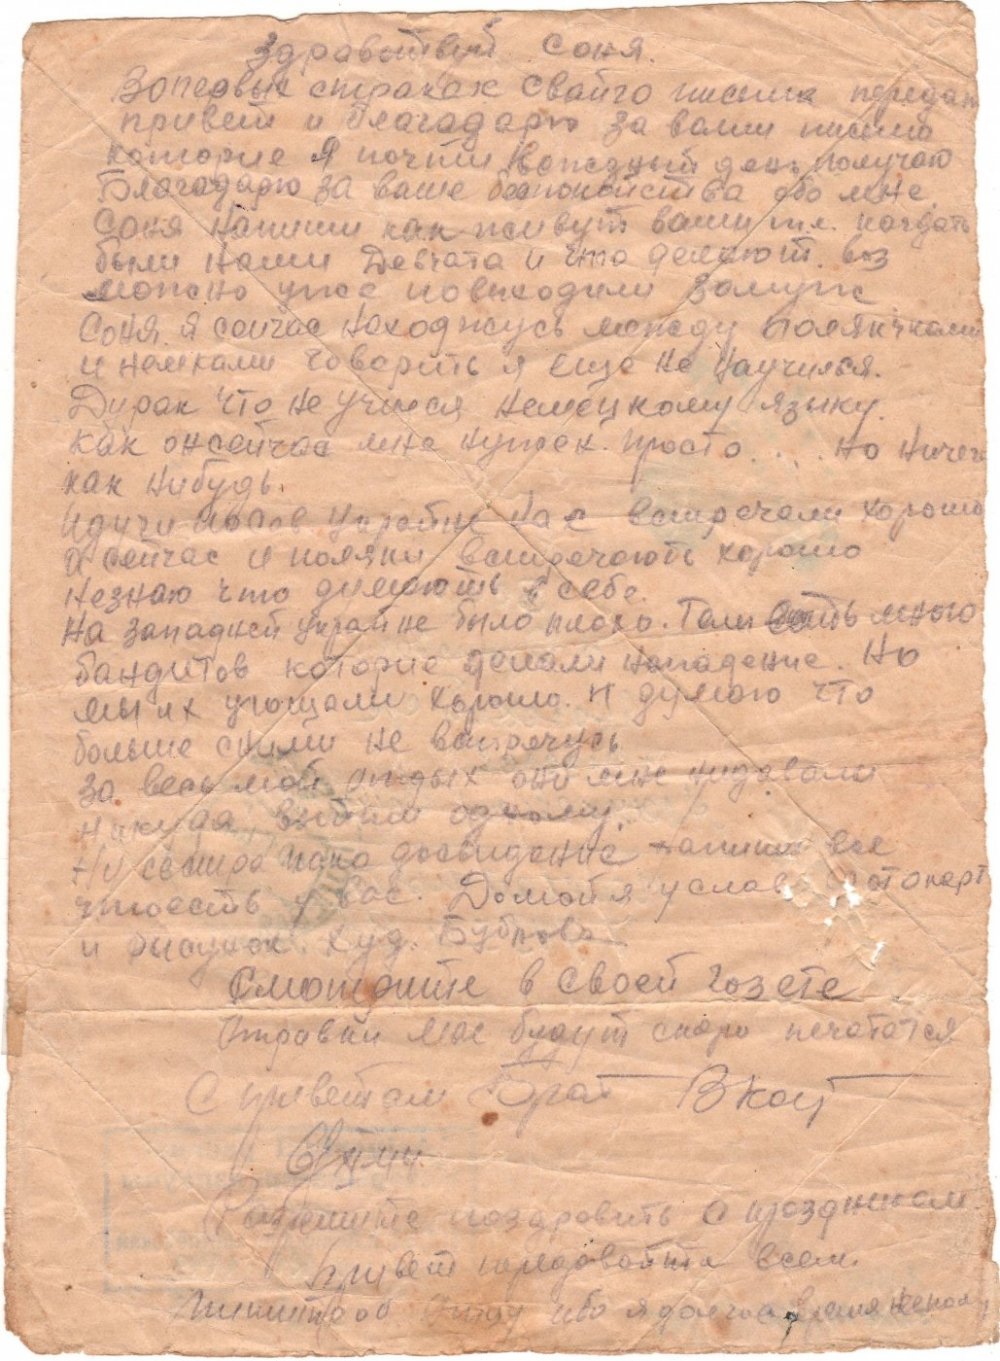 Здравствуй Соня.
Вопервых строчках свайго письма передаю
привет и благодарю за ваши письма
которые Я почти каждный день получаю
Благодарю за ваше беспокойства обо мне.
Соня напиши как живут ваши
были наши Девчата и что делают. воз
можно уже повыходили замуж
Соня я сейчас нахожусь между поляками
и немками говорить я еще не научился.
Дурак что не учился немецкому языку.
как он сейчас мне нужен. просто . . . . но ничег
как нибудь.
Идучи по Украйне нас встречали хорошо
и сейчас и поляки встречають хорошо
незнаю что думають в себе.
На западней Украйне было плохо. Там есть много
бандитов которые делали нападение. Но
мы их угощали хорошо. Я думаю что
больше сними не встречусь
за весь мой отдых они мне недавали
никуда выйти одному.
Ну сестра пока досвидение напиши все
чтоесть у вас. Домой я услав фотокарт
и рисунок. худ. Бубнова
Смотрите в своей газете
Отравки мое будут скоро печататся
С приветам Брат В Кот

Разрешите поздровить с праздником.
Привет передавайте всем.
Пишите об ибо я долгое время не пол